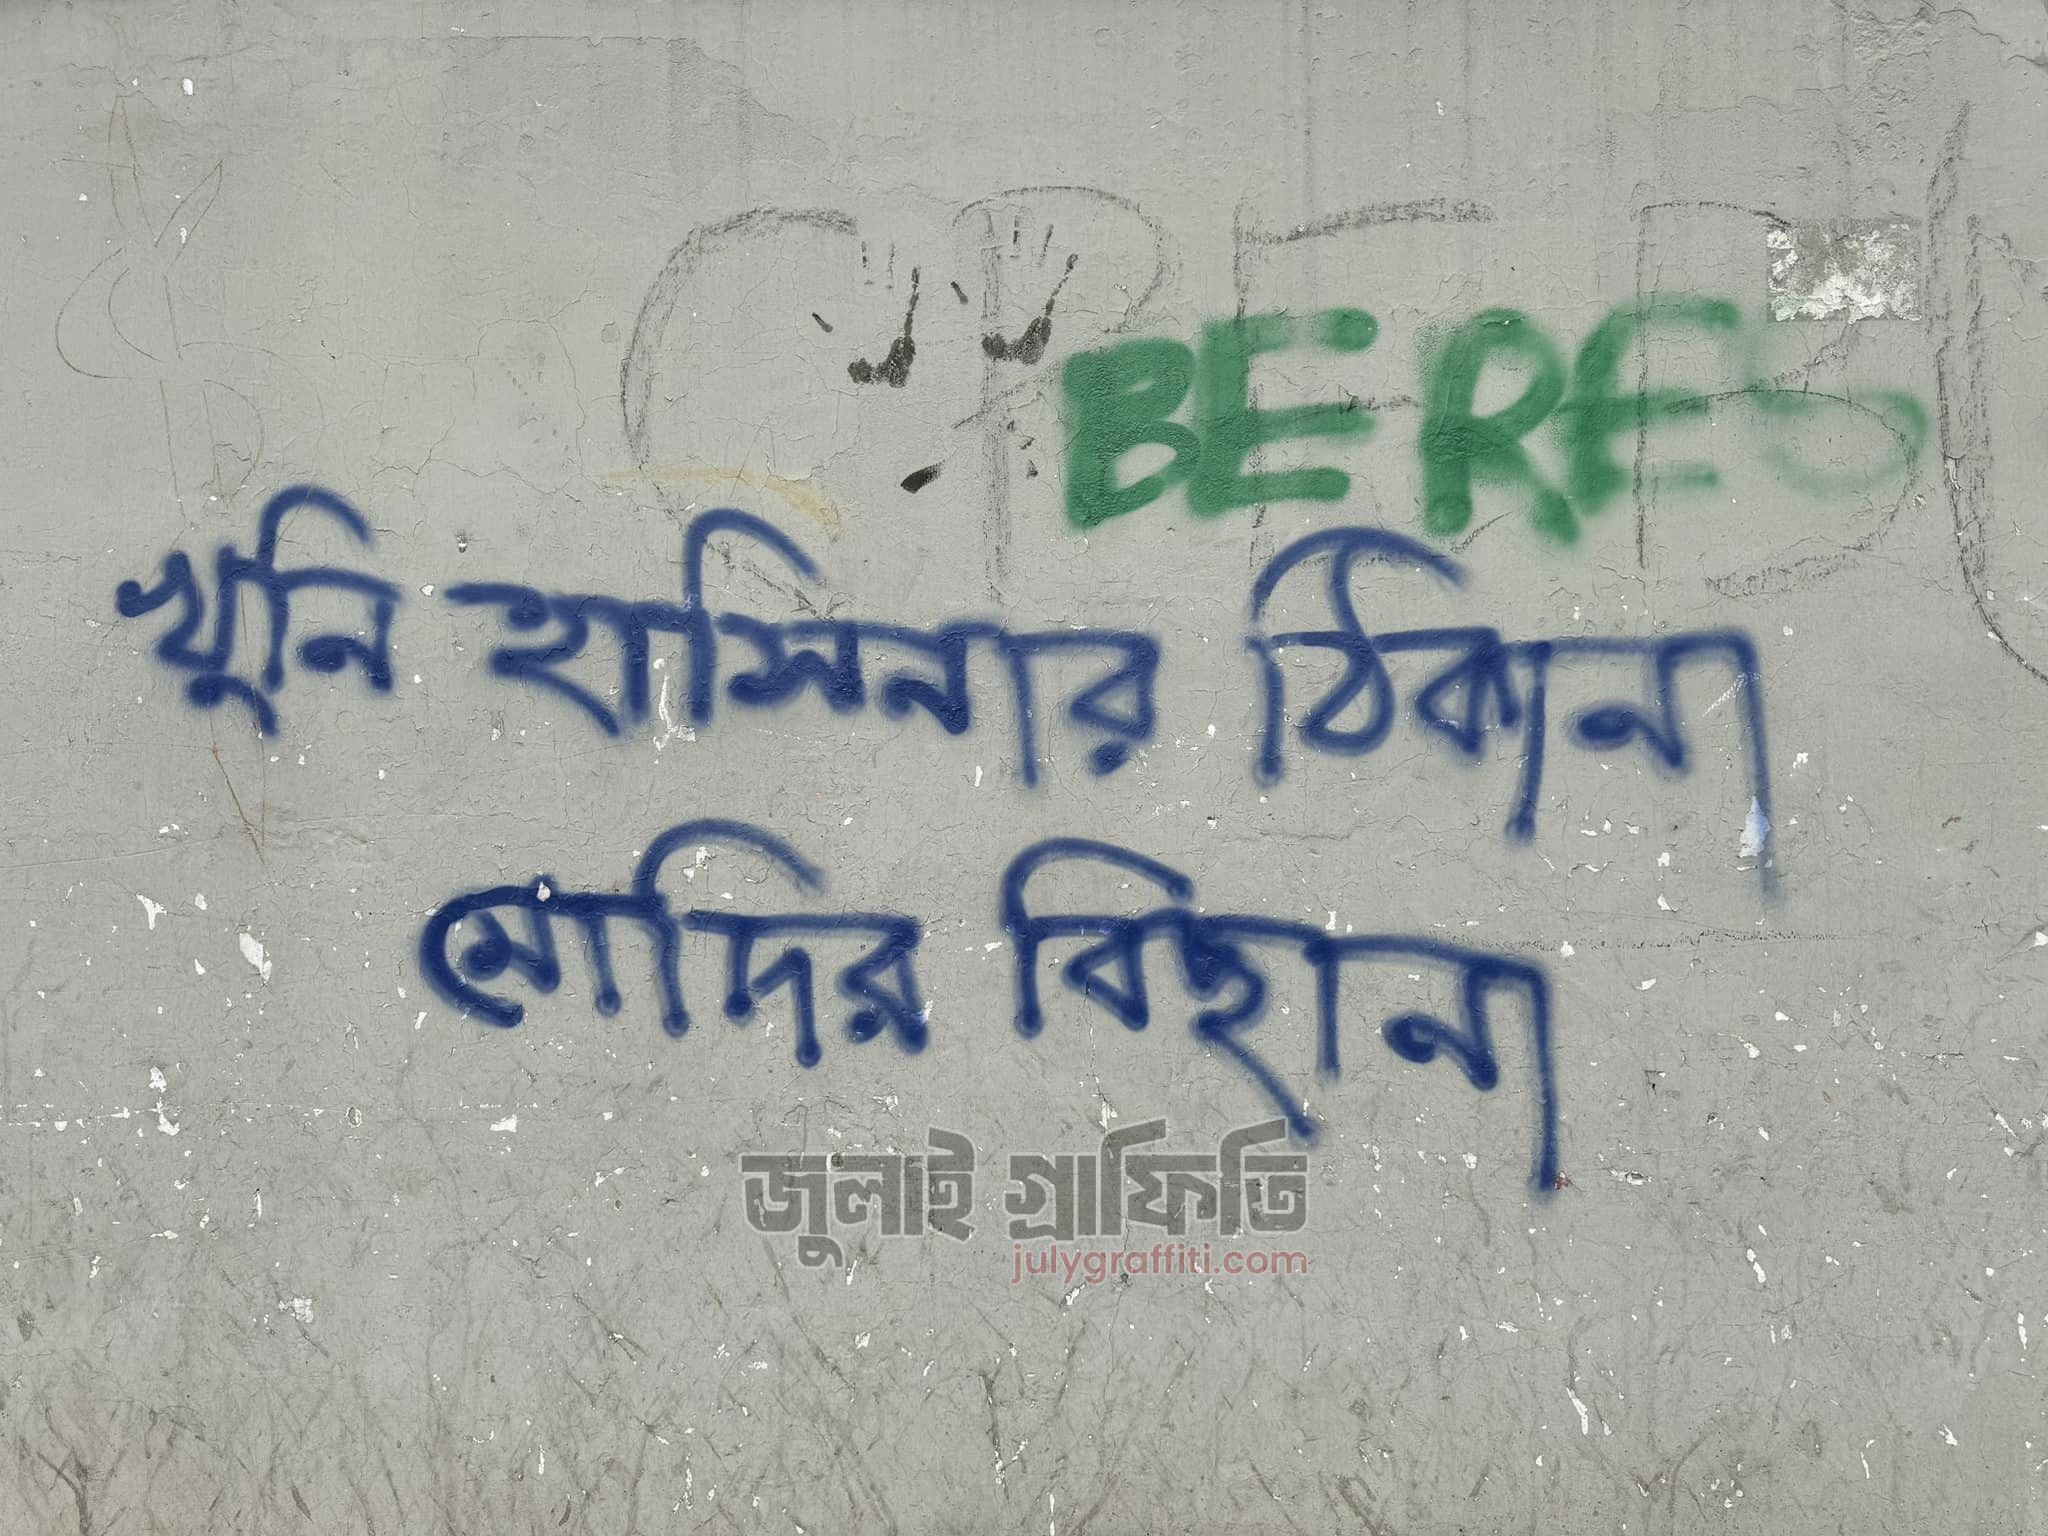 BERES
খুনি হাসিনার ঠিকানা
মোদির বিছানা
জুলাই গ্রাফিতি
julygraffiti.com